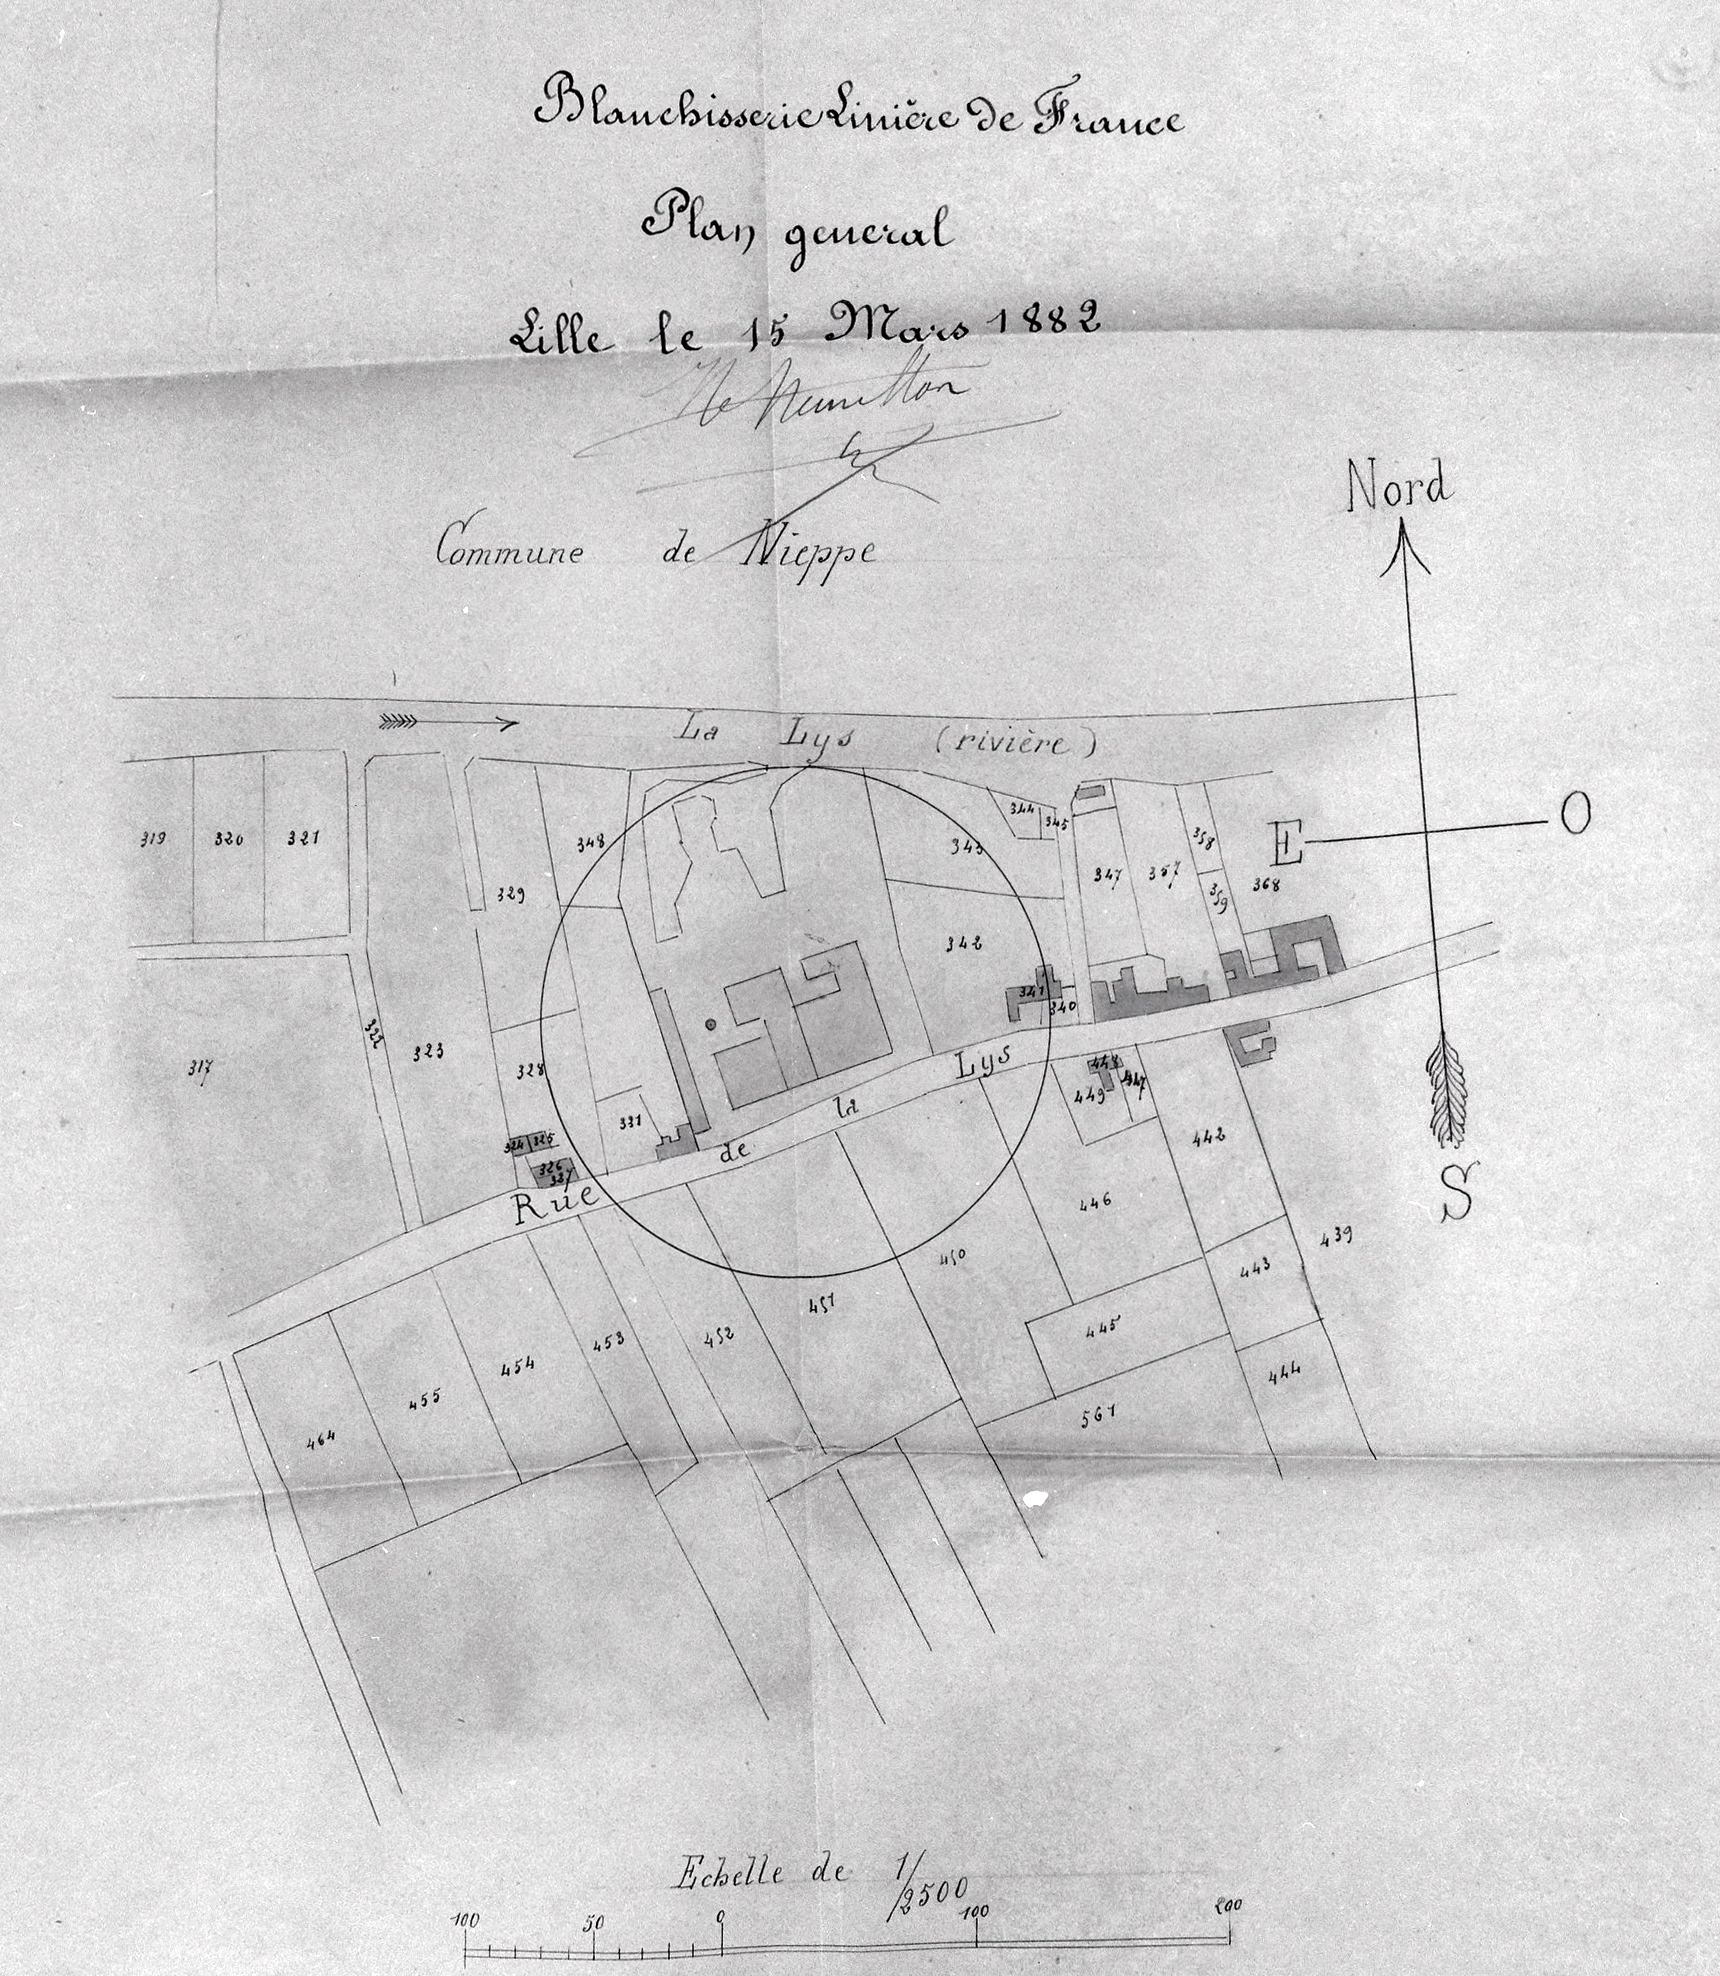 Blanchisserie Linière de France
Plan general
Lille le 15 Mars 1882
Commune de Nieppe
Nord
La Lys (rivière)
E O
S
319 320 321 329 348 343 344 345 347 357 358 359 368
317 322 323 328 342 341 340
331 324 325 326 327
Rue de la Lys
448 449 447 442
446 450 439
443 445 444 561
451 452 453 454 455 464
Echelle de 1/2500
100 50 0 100 200